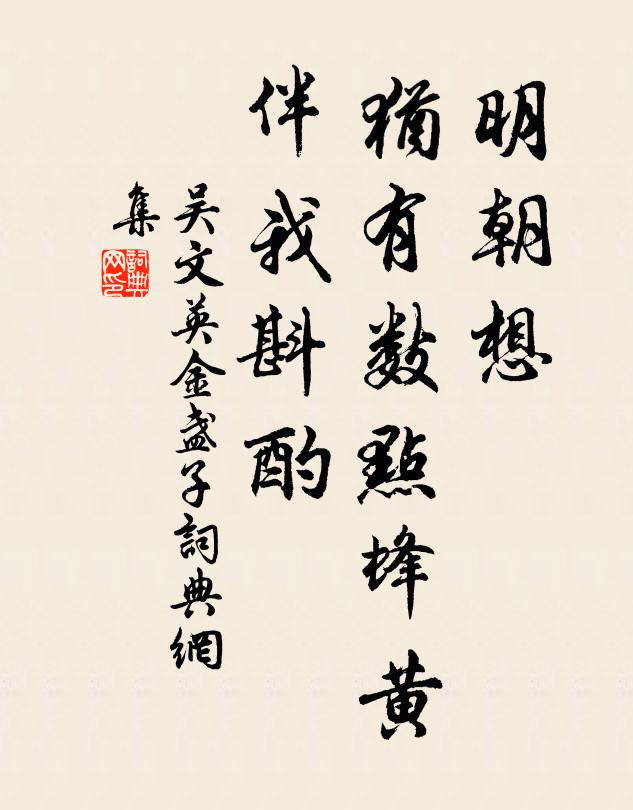 明朝想
猶有數點蜂黃
伴我斟酌
吳文英金盞子詞典網
集
詞典
网印